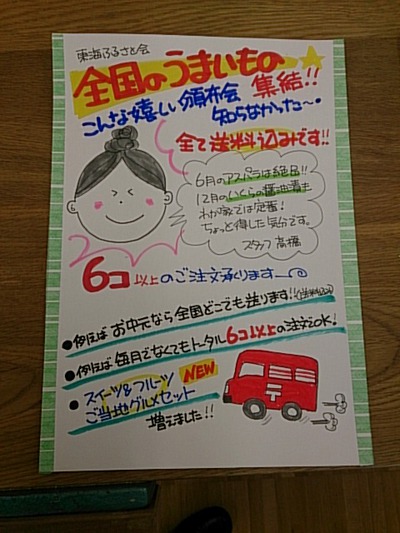 東海ふるさと会
全国のうまいもの
集結!!
こんな嬉しい頒布会
知らなかった～・
全て送料込みです!!
6月のアスパラは絶品!!
12月のいくらの醤油漬も
わが家では定番!
ちょっと得した気分です。
スタッフ 高橋
6コ以上のご注文承ります
●例えば お中元なら全国どこでも送ります!!(送料込み)
●例えば 毎月でなくてもトータル6コ以上の注文OK!
● スイーツ&フルーツ NEW
ご当地グルメセット
増えました!!
〒